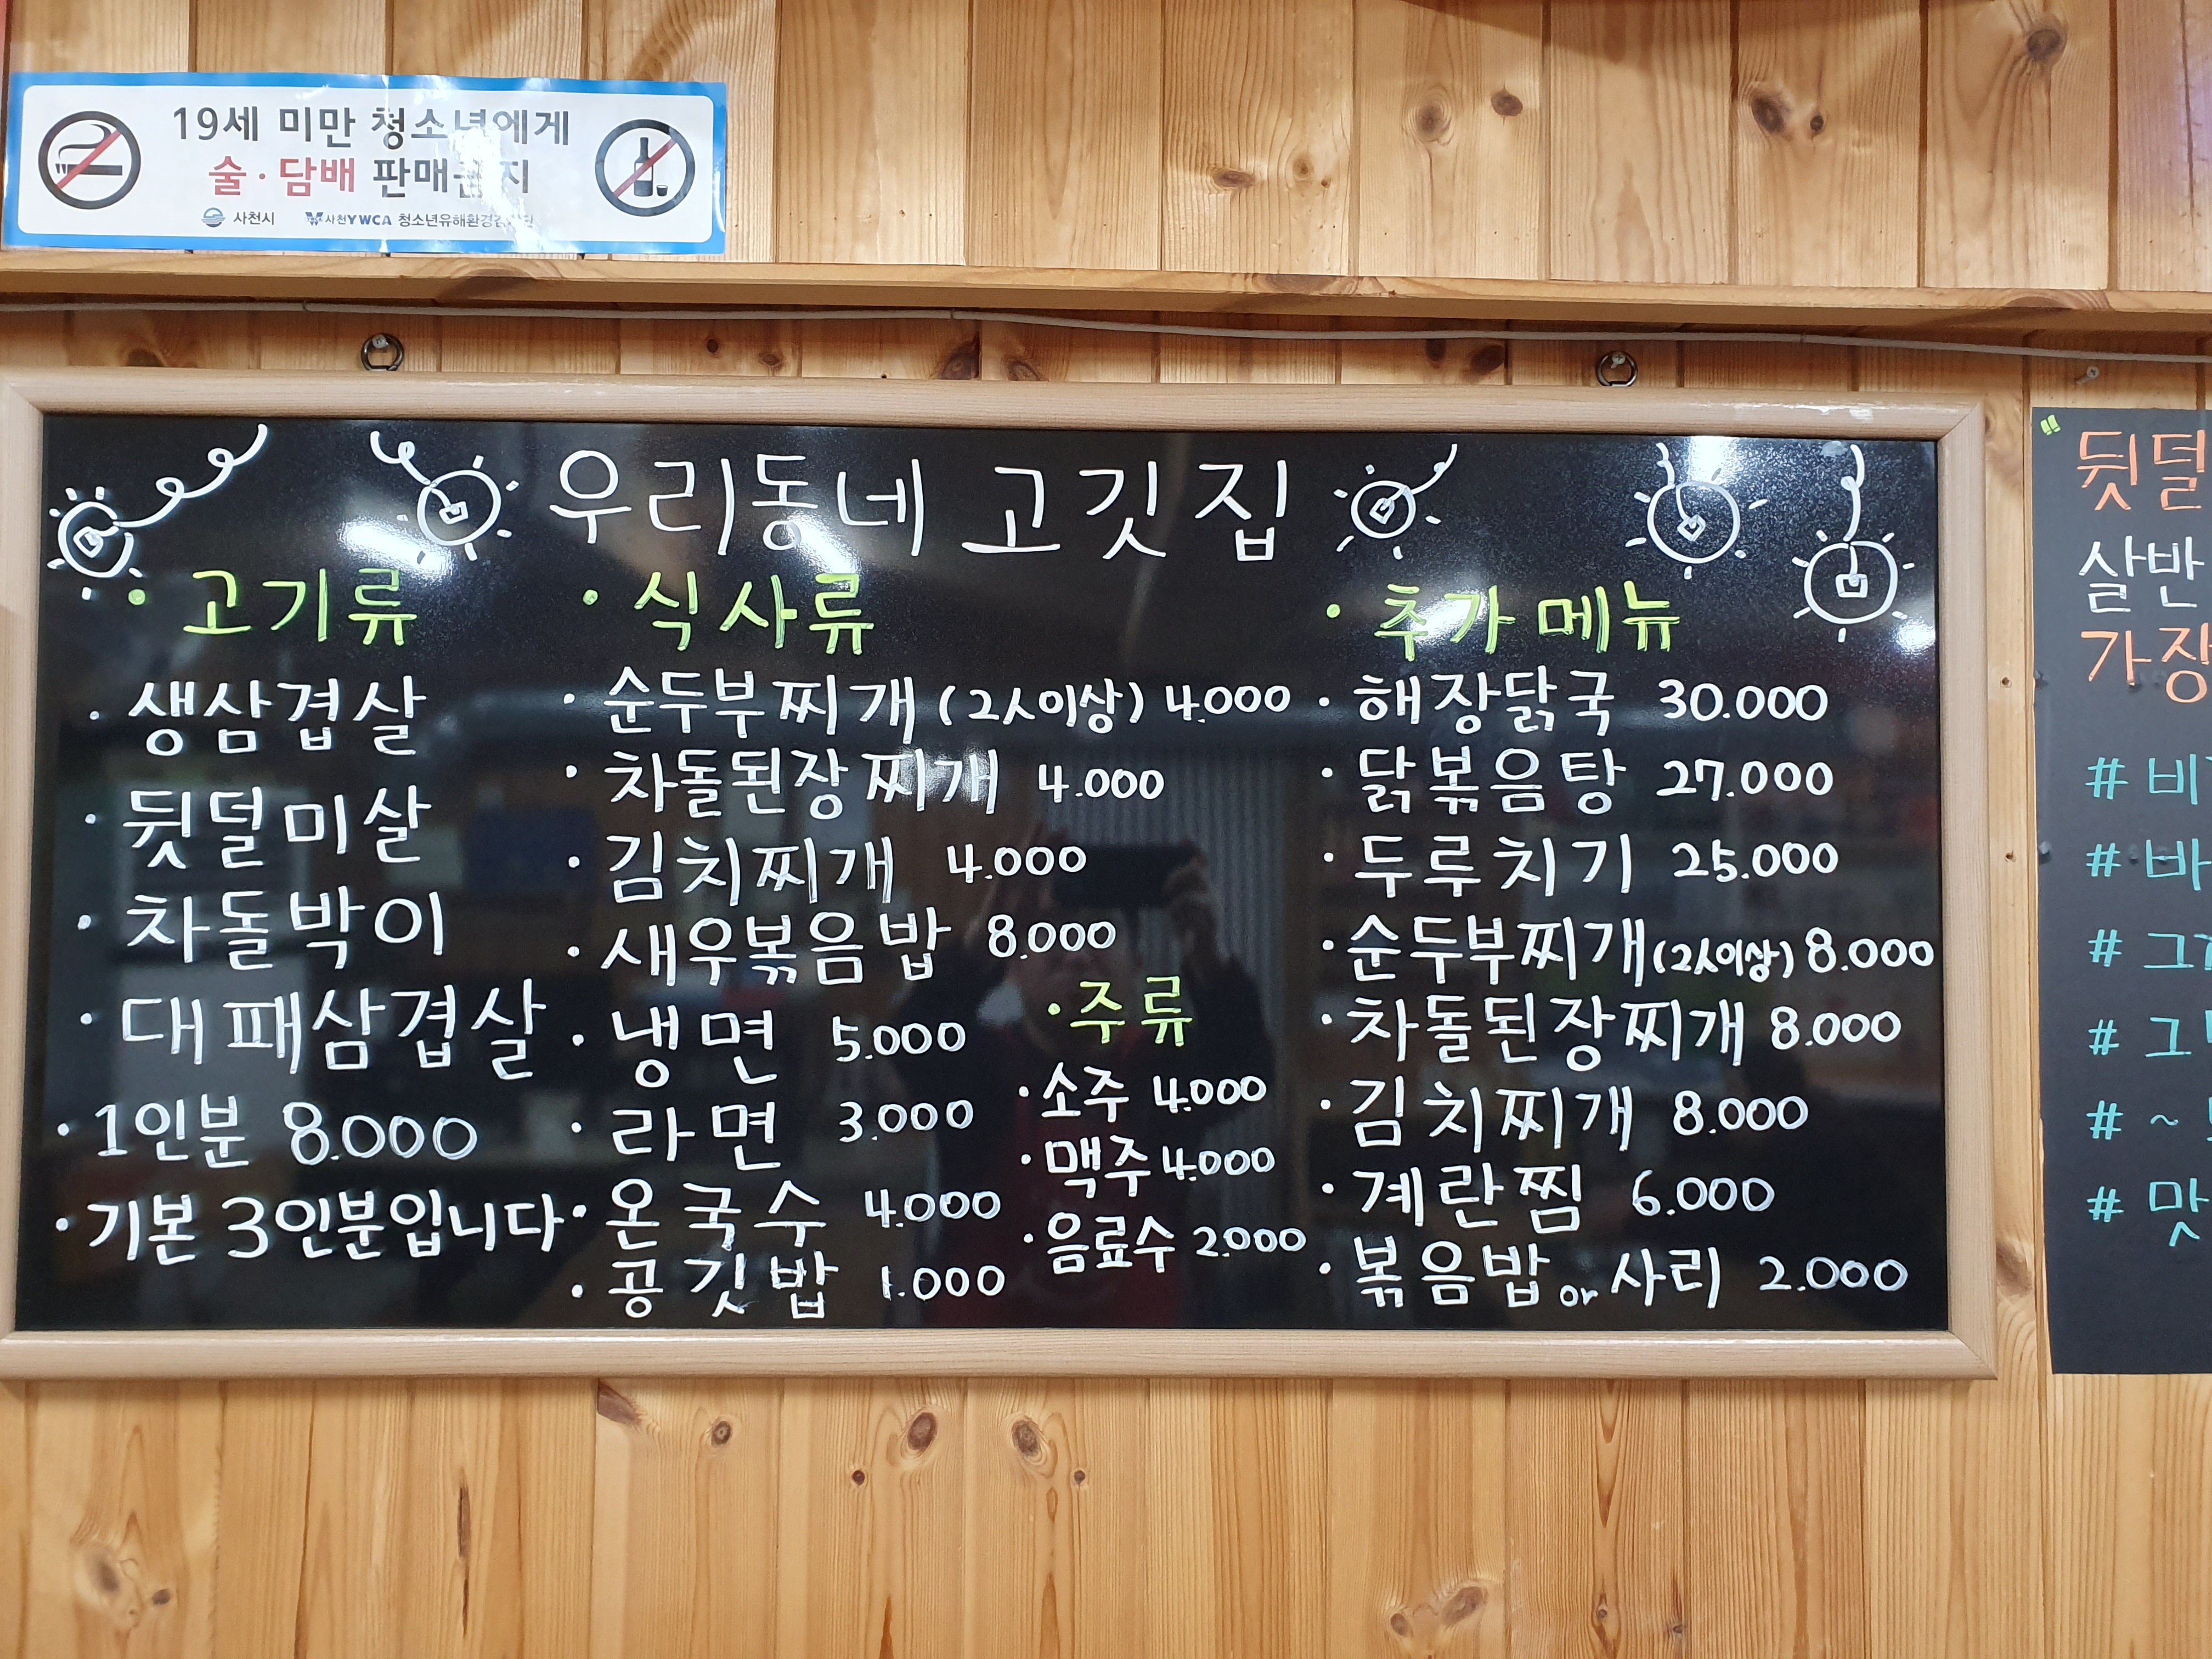 19세 미만 청소년에게
술·담배 판매금지
사천시 사천YWCA 청소년유해환경감시단
우리동네 고깃집
· 고기류
· 생삼겹살
· 뒷덜미살
· 차돌박이
· 대패삼겹살
· 1인분 8.000
· 기본 3인분입니다
· 식사류
· 순두부찌개 (2人이상) 4.000
· 차돌된장찌개 4.000
· 김치찌개 4.000
· 새우볶음밥 8.000
· 냉면 5.000
· 라면 3.000
· 온국수 4.000
· 공깃밥 1.000
· 주류
· 소주 4.000
· 맥주 4.000
· 음료수 2.000
· 추가메뉴
· 해장닭국 30.000
· 닭볶음탕 27.000
· 두루치기 25.000
· 순두부찌개 (2人이상) 8.000
· 차돌된장찌개 8.000
· 김치찌개 8.000
· 계란찜 6.000
· 볶음밥 or 사리 2.000
"뒷덜
살반
가장
# 비
# 바
# 그
# 그
# ~
# 맛